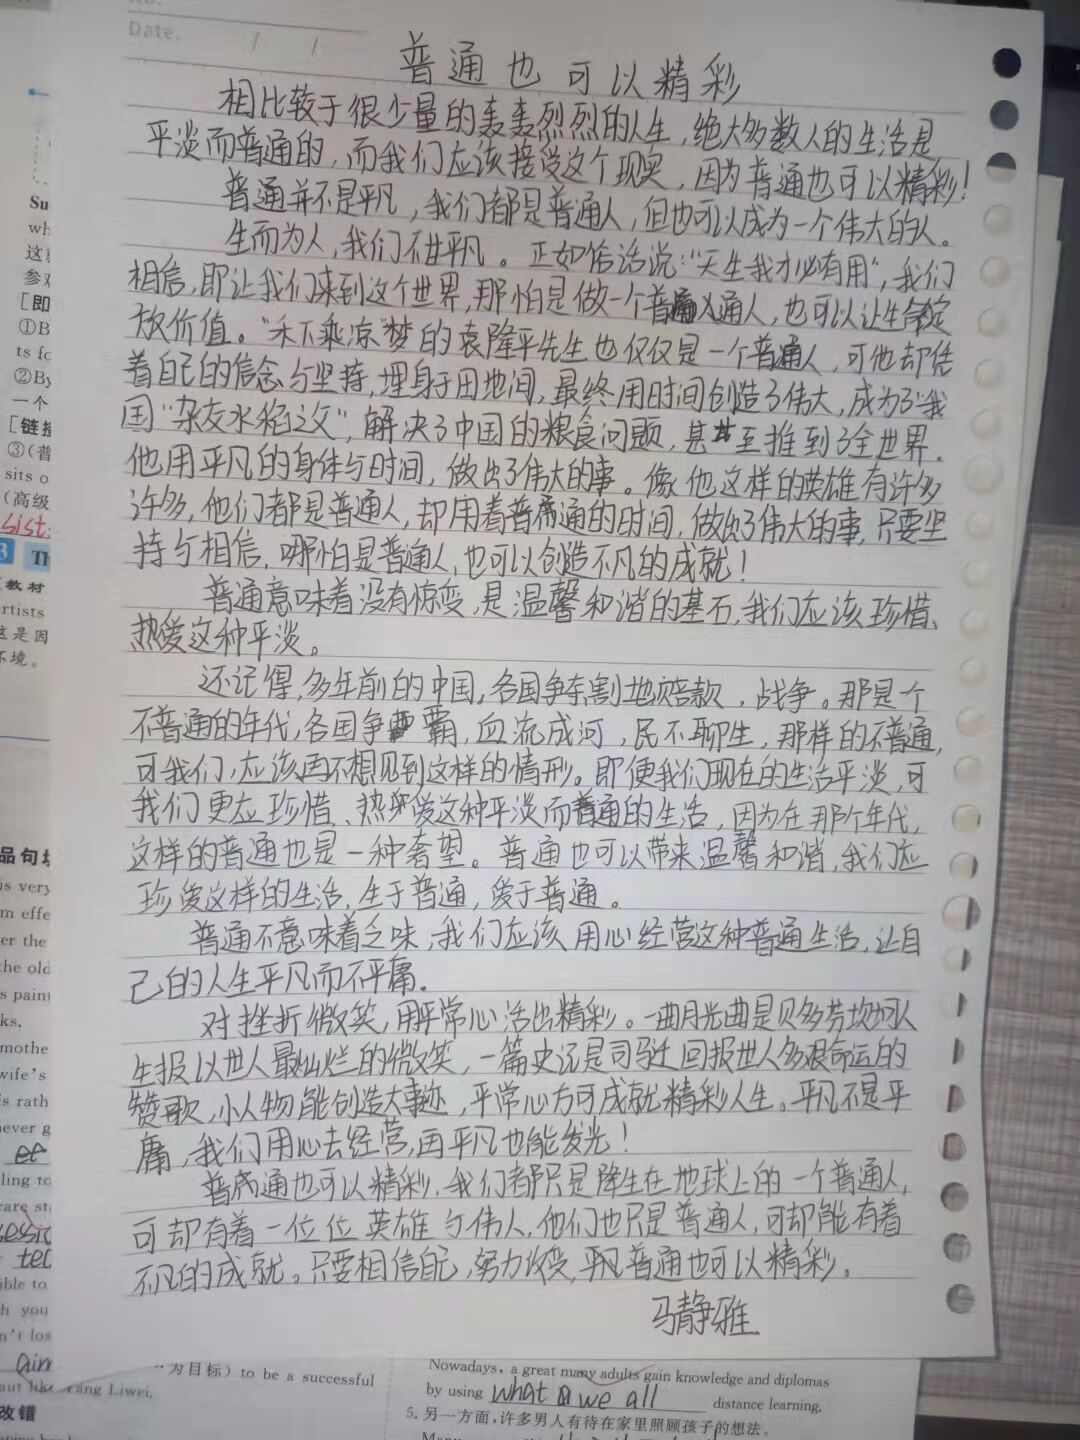 No.
Date. / /
普通也可以精彩
相比较于很少量的轰轰烈烈的人生，绝大多数人的生活是
平淡而普通的，而我们应该接受这个现实，因为普通也可以精彩！
普通并不是平凡，我们都是普通人，但也可以成为一个伟大的人。
生而为人，我们不甘平凡。正如俗话说：“天生我才必有用”，我们
相信，即让我们来到这个世界，那怕是做一个普通人，也可以让生命绽
放价值。“禾下乘凉”梦的袁隆平先生也仅仅是一个普通人，可他却凭
着自己的信念与坚持，埋身于田地间，最终用时间创造了伟大，成为了“我
国“杂交水稻之父”，解决了中国的粮食问题，甚至推到了全世界．
他用平凡的身体与时间，做出了伟大的事。像他这样的英雄有许多
许多，他们都是普通人，却用着普通的时间，做出了伟大的事，只要坚
持与相信，哪怕是普通人，也可以创造不凡的成就！
普通意味着没有惊变，是温馨和谐的基石，我们应该珍惜、
热爱这种平淡。
还记得，多年前的中国，各国争东割地赔款，战争。那是个
不普通的年代，各国争霸，血流成河，民不聊生，那样的不普通，
可我们，应该再不想见到这样的情形。即使我们现在的生活平淡，可
我们更应珍惜、热爱这种平淡而普通的生活，因为在那个年代，
这样的普通也是一种奢望。普通也可以带来温馨和谐，我们应
珍爱这样的生活，生于普通，爱于普通。
普通不意味着乏味，我们应该用心经营这种普通生活，让自
己的人生平凡而不平庸．
对挫折微笑，用平常心活出精彩。一曲月光曲是贝多芬坎坷人
生报以世人最灿烂的微笑，一篇史记是司马迁回报世人多艰命运的
赞歌，小人物能创造大事迹，平常心方可成就精彩人生。平凡不是平
庸，我们用心去经营，再平凡也能发光！
普通也可以精彩．我们都只是降生在地球上的一个普通人，
可却有着一位位英雄与伟人，他们也只是普通人，可却能有着
不凡的成就。只要相信自己，努力改变，平凡普通也可以精彩。
马静雅
Su
wh
参
[即
①B
ts fo
②By
一个
[链接
③(普
sits o
(高级
sist
Th
教材
rtists
这是因
不境。
品句
is very
m effe
er the
the old
s paint
ks.
mothe
wife's
is rath
never g
et
ling to
rare st
ted
ible to
h you
n't los
aim
aut like Yang Liwei.
改错
为目标) to be a successful
Nowadays, a great many adults gain knowledge and diplomas
by using what we all distance learning.
5. 另一方面,许多男人有待在家里照顾孩子的想法。